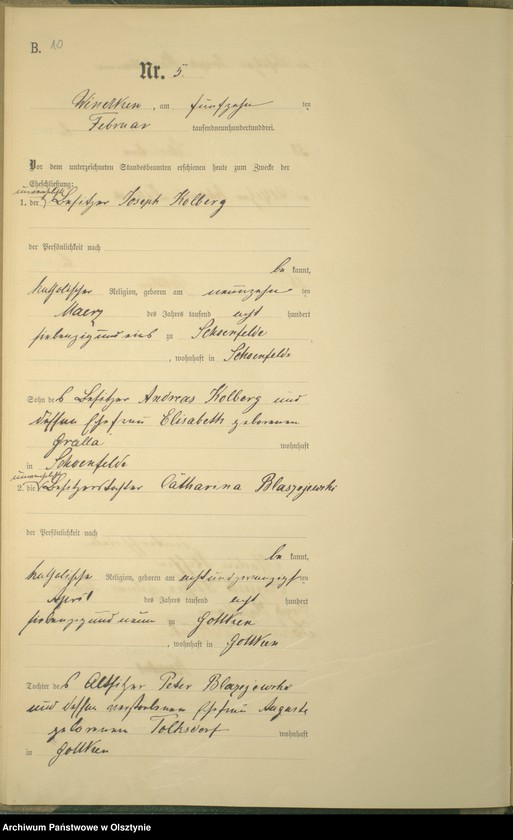 B. 10
Nr. 5.
Windtken, am fünfzehn ten
Februar tausendneunhundertunddrei.
Vor dem unterzeichneten Standesbeamten erschienen heute zum Zwecke der
Eheschließung:
unverehelichte
1. der Besitzer Joseph Kolberg
der Persönlichkeit nach
be kannt,
katholischer Religion, geboren am neunzehn ten
Maerz des Jahres tausend acht hundert
siebenzig und eins zu Schoenfelde
, wohnhaft in Schoenfelde
Sohn des Besitzer Andreas Kolberg und
dessen Ehefrau Elisabeth geborenen
Gralla wohnhaft
in Schoenfelde
unverehelichte
2. die Besitzerstochter Catharina Blaszejewski
der Persönlichkeit nach
be kannt,
katholische Religion, geboren am achtundzwanzigsten
April des Jahres tausend acht hundert
siebenzig und neun zu Gottken
, wohnhaft in Gottken
Tochter des Altsitzer Peter Blaszejewski
und dessen verstorbenen Ehefrau Auguste
geborenen Tolksdorf wohnhaft
in Gottken
Archiwum Państwowe w Olsztynie